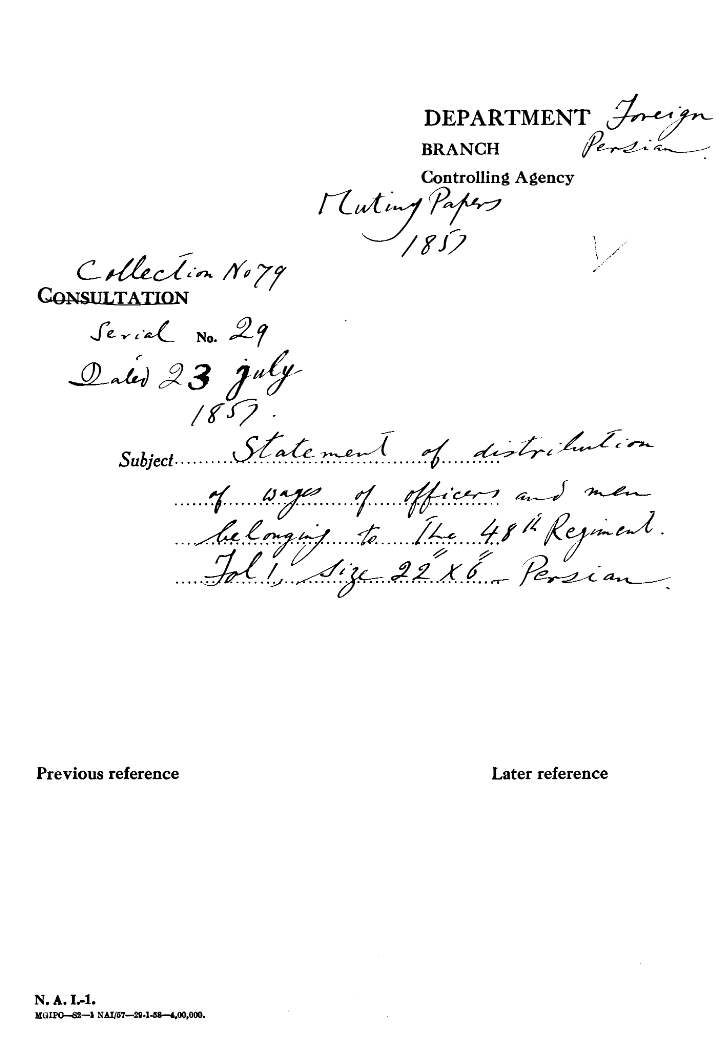 DEPARTMENT Foreign
BRANCH Persian
Controlling Agency
Mutiny Papers
1857
Collection No 79
CONSULTATION
Serial No. 29
Dated 23 july
1857.
Subject Statement of distribution
of wages of officers and men
belonging to The 48th Regiment.
Fol 1, size 22" X 6" Persian
Previous reference
Later reference
N. A. I.-1.
MGIPO—S2—1 NAI/57—29-1-58—4,00,000.